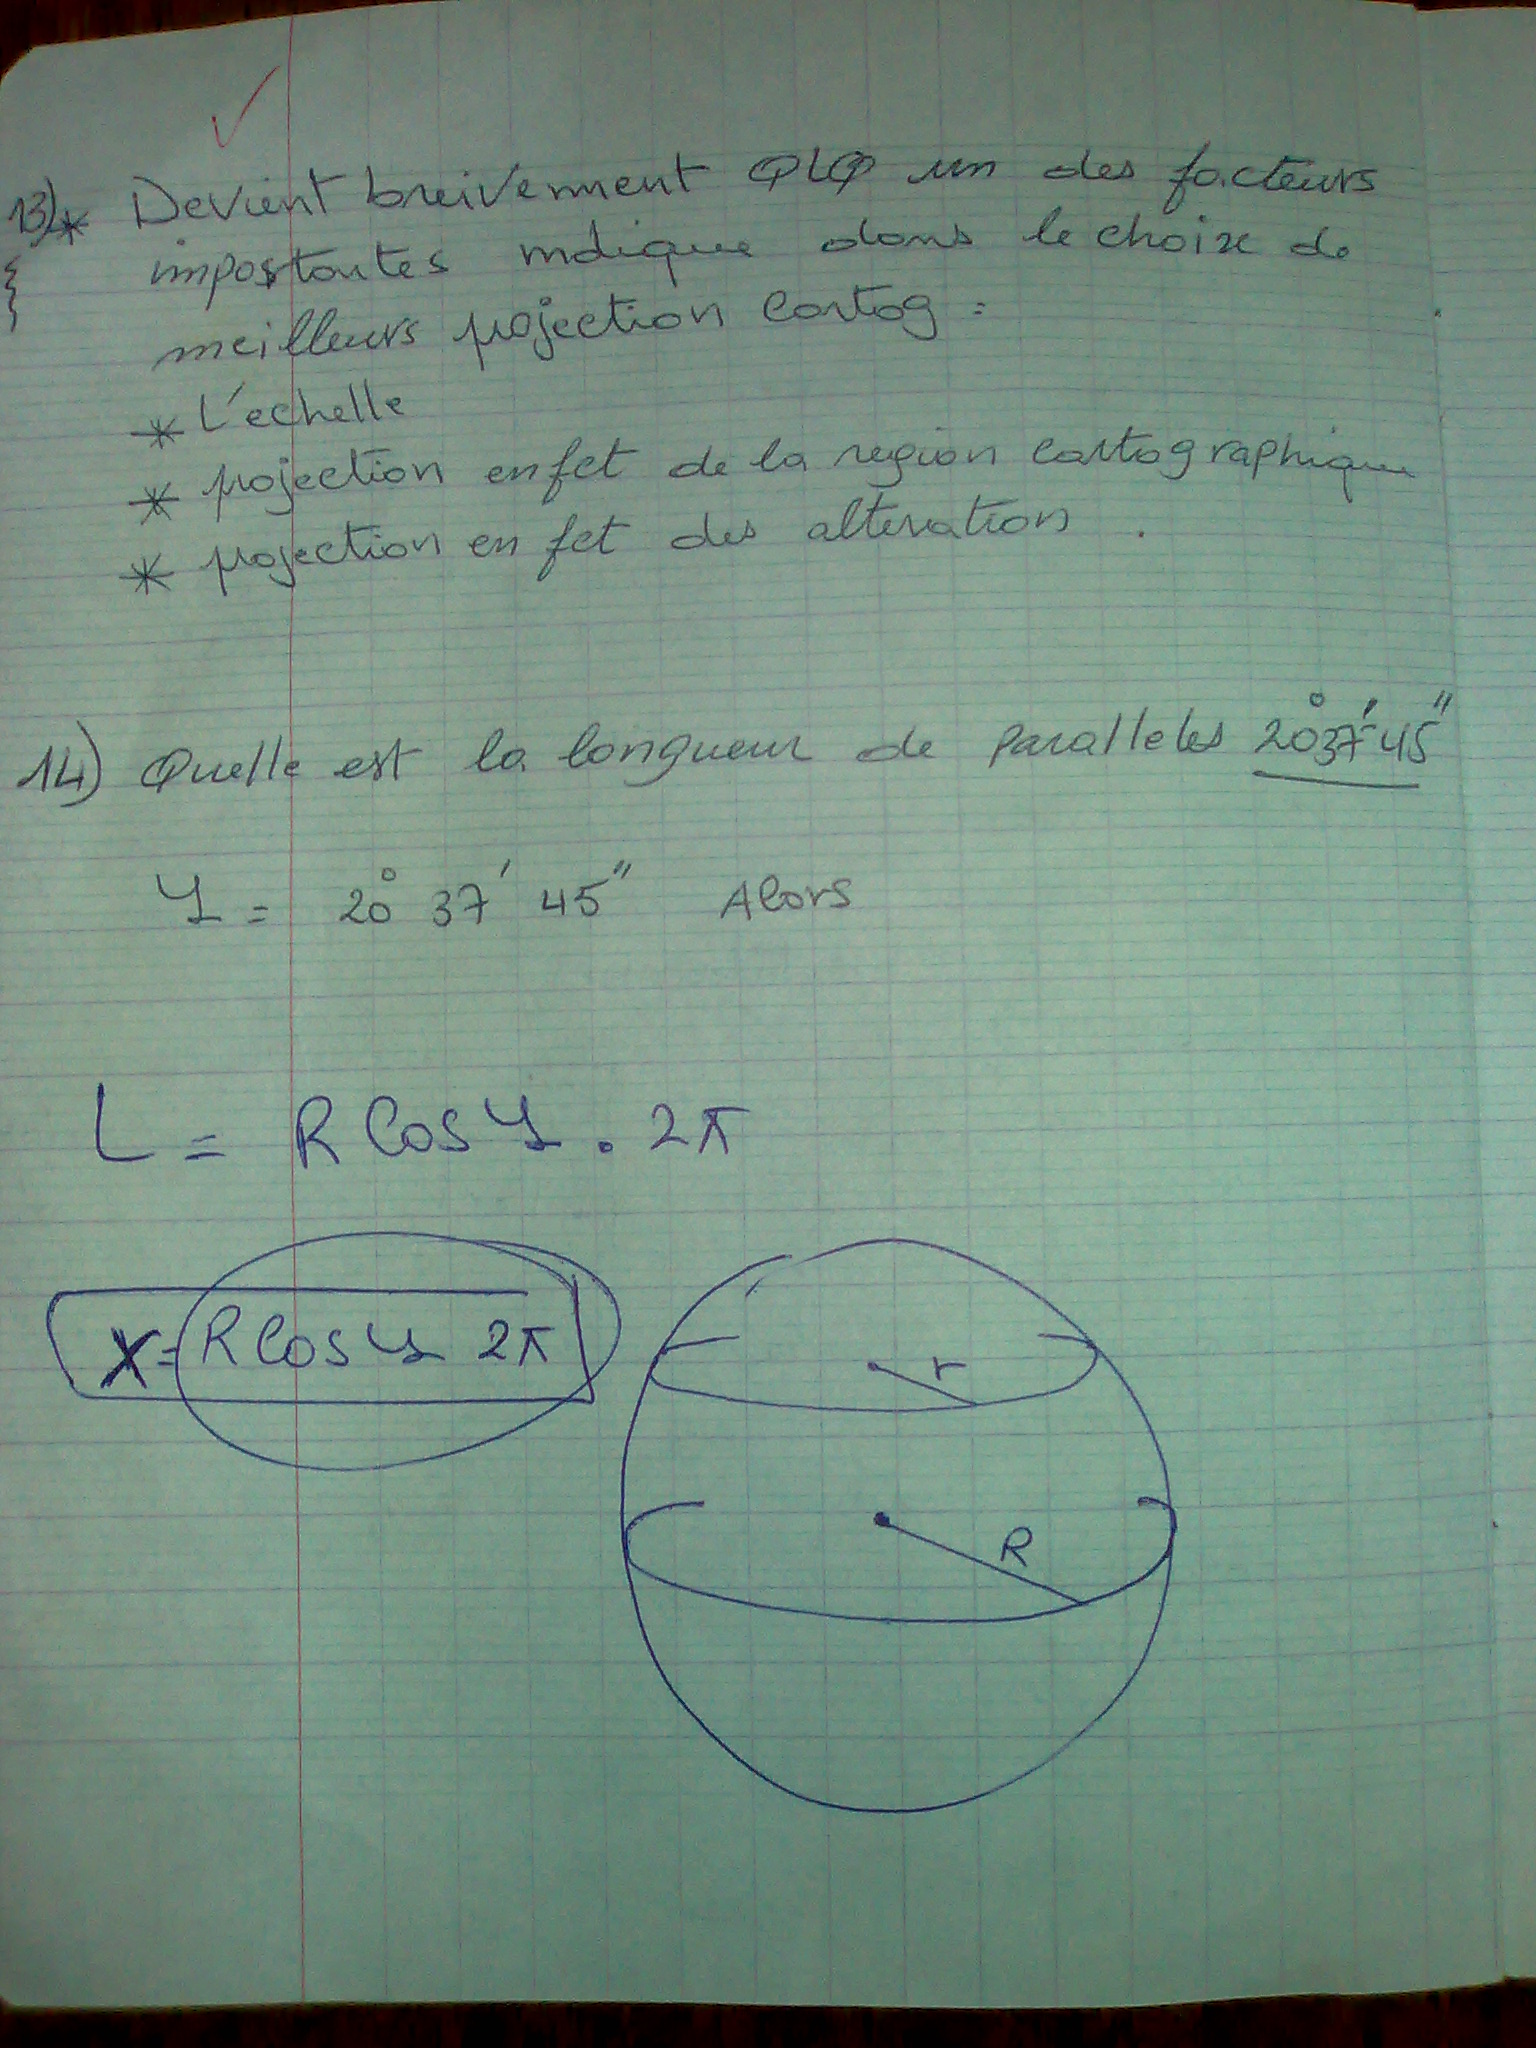 13)* Devient breivement QLQ un des facteurs
importantes indique dans le choix de
meilleurs projection cartog :
* L'echelle
* projection en fct de la region cartographique
* projection en fct des alteration .
14) Quelle est la longueur de paralleles 20° 37' 45"
φ = 20° 37' 45" Alors
L = R Cos φ . 2π
X = R Cos φ 2π
r
R